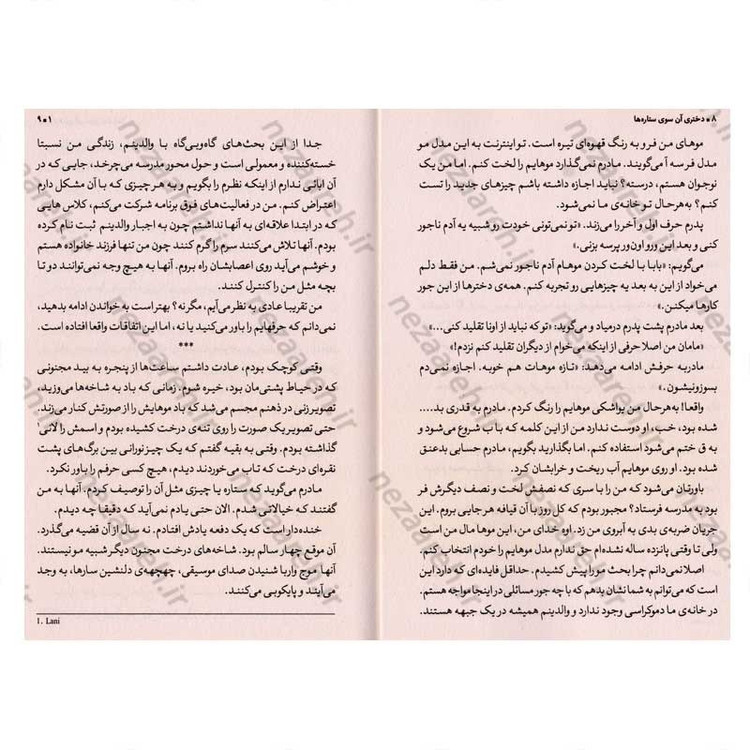 ۸ ● دختری آن سوی ستاره‌ها
موهای من فر و به رنگ قهوه‌ای تیره است. تو اینترنت به این مدل مو
مدل فر سه آ می‌گویند. مادرم نمی‌گذارد موهایم را لخت کنم. اما من یک
نوجوان هستم، درسته؟ نباید اجازه داشته باشم چیزهای جدید را تست
کنم؟ به‌هرحال تو خانه‌ی ما نمی‌شود.
پدرم حرف اول و آخر را می‌زند. «تو نمی‌تونی خودت رو شبیه یه آدم ناجور
کنی و بعد این ور و اون ور پرسه بزنی.»
می‌گویم: «بابا با لخت کردن موهام آدم ناجور نمی‌شم. من فقط دلم
می‌خواد از این به بعد یه چیزهایی رو تجربه کنم. همه‌ی دخترها از این جور
کارها میکنن.»
بعد مادرم پشت پدرم درمیاد و می‌گوید: «تو که نباید از اونا تقلید کنی...»
«مامان من اصلا حرفی از اینکه می‌خوام از دیگران تقلید کنم نزدم!»
مادر به حرفش ادامه می‌دهد: «تازه موهات هم خوبه. اجازه نمی‌دم
بسوزونیشون.»
واقعا! به‌هرحال من یواشکی موهایم را رنگ کردم. مادرم به قدری بد....
شده بود، خب، او دوست ندارد من از این کلمه که با ب شروع می‌شود و
به ق ختم می‌شود استفاده کنم. اما بگذارید بگویم، مادرم حسابی بدعنق
شده بود. او روی موهایم آب ریخت و خرابشان کرد.
باورتان می‌شود که من را با سری که نصفش لخت و نصف دیگرش فر
بود به مدرسه فرستاد؟ مجبور بودم که کل روز با آن قیافه هرجایی بروم. این
جریان ضربه‌ی بدی به آبروی من زد. اوه خدای من، این موها مال من است
ولی تا وقتی پانزده ساله نشده‌ام حق ندارم مدل موهایم را خودم انتخاب کنم.
اصلا نمی‌دانم چرا بحث مو را پیش کشیدم. حداقل فایده‌ای که دارد این
است که می‌توانم به شما نشان بدهم که با چه جور مسائلی در اینجا مواجه هستم.
در خانه‌ی ما دموکراسی وجود ندارد و والدینم همیشه در یک جبهه هستند.
۱ ● ۹
جدا از این بحث‌های گاه‌وبی‌گاه با والدینم، زندگی من نسبتا
خسته‌کننده و معمولی است و حول محور مدرسه می‌چرخد، جایی که در
آن ابائی ندارم از اینکه نظرم را بگویم و به هر چیزی که با آن مشکل دارم
اعتراض کنم. من در فعالیت‌های فوق برنامه شرکت می‌کنم، کلاس هایی
که در ابتدا علاقه‌ای به آنها نداشتم چون به اجبار والدینم ثبت نام کرده
بودم. آنها تلاش می‌کنند سرم را گرم کنند چون من تنها فرزند خانواده هستم
و خوشم می‌آید روی اعصابشان راه بروم. آنها به هیچ وجه نمی‌توانند دو تا
بچه مثل من را کنترل کنند.
من تقریبا عادی به نظر می‌آیم، مگرنه؟ بهتر است به خواندن ادامه بدهید،
نمی‌دانم که حرفهایم را باور می‌کنید یا نه، اما این اتفاقات واقعا افتاده است.
***
وقتی کوچک بودم، عادت داشتم ساعت‌ها از پنجره به بید مجنونی
که در حیاط پشتی‌مان بود، خیره شوم. زمانی که باد به شاخه‌ها می‌وزید،
تصویر زنی در ذهنم مجسم می‌شد که باد موهایش را از صورتش کنار می‌زند.
حتی تصویر یک صورت را روی تنه‌ی درخت کشیده بودم و اسمش را لانی۱
گذاشته بودم. وقتی به بقیه گفتم که یک چیز نورانی بین برگ‌های پشت
نقره‌ای درخت که تاب می‌خوردند دیدم، هیچ کسی حرفم را باور نکرد.
مادرم می‌گوید که ستاره یا چیزی مثل آن را توصیف کردم. آنها به من
گفتند که خیالاتی شدم. الان حتی یادم نمی‌آید که دقیقا چه دیدم.
خنده‌دار است که یک دفعه یادش افتادم. نه سال از آن قضیه می‌گذرد.
آن موقع چهار سالم بود. شاخه‌های درخت مجنون دیگر شبیه مو نیستند.
آنها موج وار با شنیدن صدای موسیقی، چهچهه‌ی دلنشین سارها، به وجد
می‌آیند و پایکوبی می‌کنند.
1. Lani
nezaareh.ir